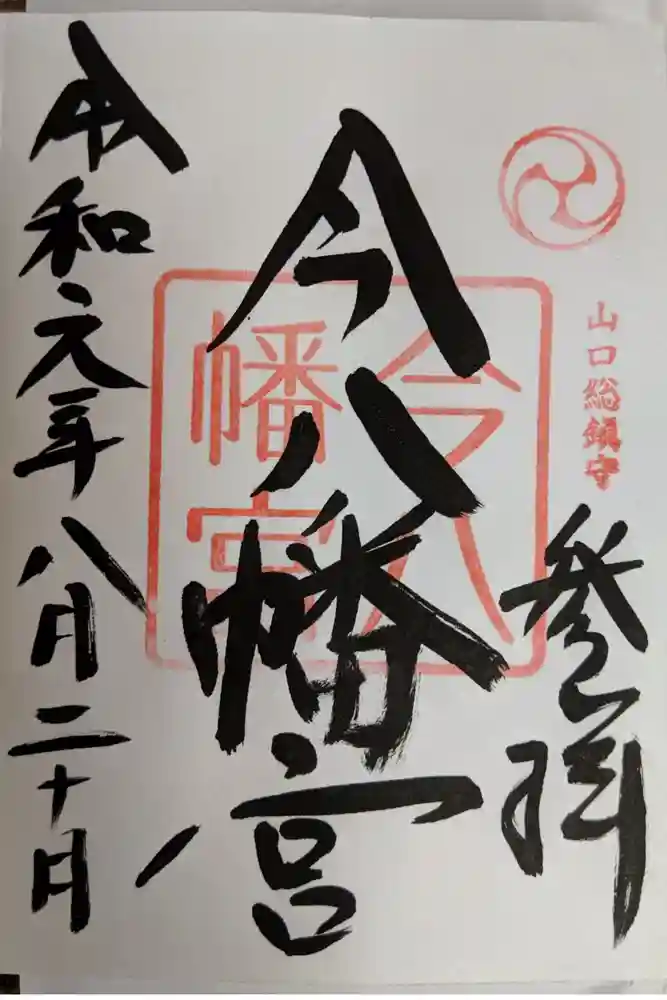 山口総鎮守
参拝
今八幡宮
今八
幡宮
令和元年八月二十日